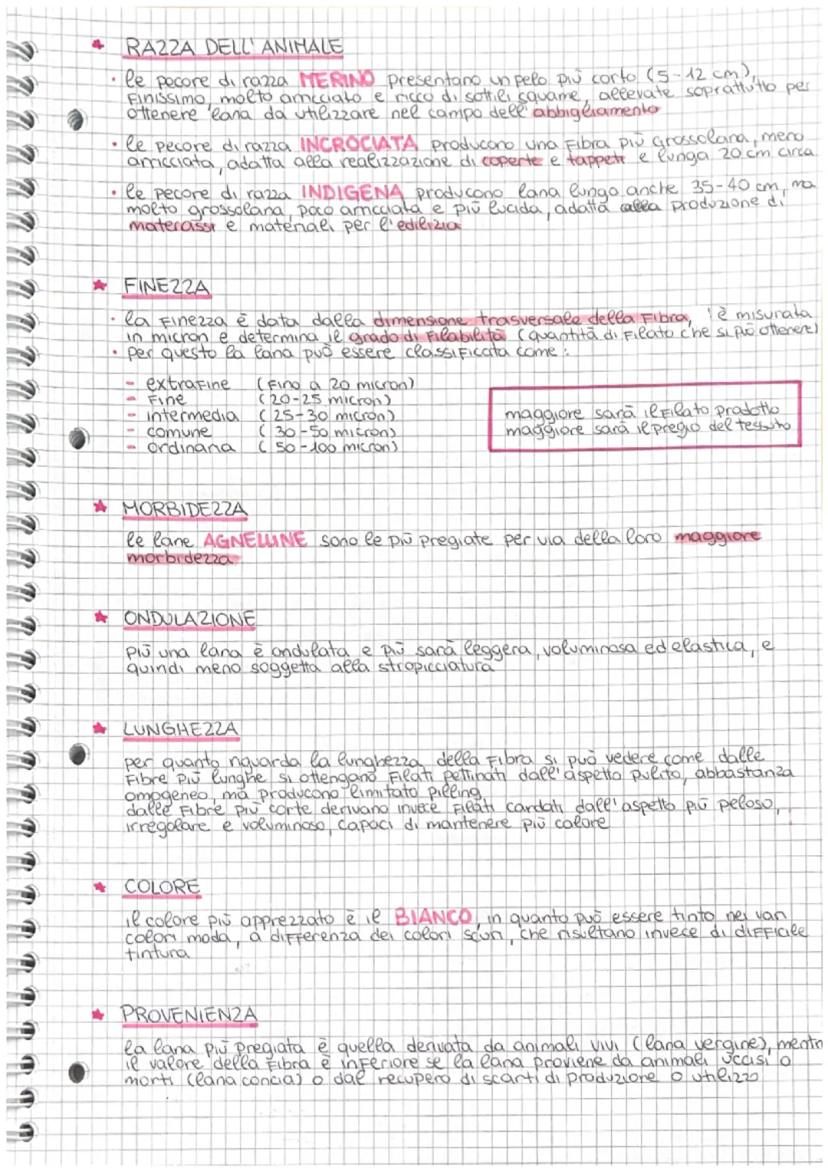 RAZZA DELL'ANIMALE
• le pecore di razza MERINO presentano un pelo più corto (5-12 cm),
finissimo, molto arricciato e ricco di sottili squame, allevate soprattutto per
ottenere lana da utilizzare nel campo dell'abbigliamento
• le pecore di razza INCROCIATA producono una fibra più grossolana, meno
arricciata, adatta alla realizzazione di coperte e tappeti e lunga 20 cm circa
• le pecore di razza INDIGENA producono lana lunga anche 35-40 cm, ma
molto grossolana, poco arricciata e più lucida, adatta alla produzione di
materassi e materiali per l'edilizia
FINEZZA
• la finezza è data dalla dimensione trasversale della fibra, è misurata
in micron e determina il grado di filabilità (quantità di filato che si può ottenere)
• per questo la lana può essere classificata come:
- extrafine (fino a 20 micron)
- fine (20-25 micron)
- intermedia (25-30 micron)
- comune (30-50 micron)
- ordinaria (50-100 micron)
maggiore sarà il filato prodotto
maggiore sarà il pregio del tessuto
MORBIDEZZA
le lane AGNELLINE sono le più pregiate per via della loro maggiore
morbidezza
ONDULAZIONE
più una lana è ondulata e più sarà leggera, voluminosa ed elastica, e
quindi meno soggetta alla stropicciatura
LUNGHEZZA
per quanto riguarda la lunghezza della fibra si può vedere come dalle
fibre più lunghe si ottengano filati pettinati dall'aspetto pulito, abbastanza
omogeneo, ma producono limitato pilling
dalle fibre più corte derivano invece filati cardati dall'aspetto più peloso,
irregolare e voluminoso, capaci di mantenere più calore
COLORE
il colore più apprezzato è il BIANCO, in quanto può essere tinto nei vari
colori moda, a differenza dei colori scuri, che risultano invece di difficile
tintura
PROVENIENZA
la lana più pregiata è quella derivata da animali vivi (lana vergine), mentre
il valore della fibra è inferiore se la lana proviene da animali uccisi o
morti (lana concia) o dal recupero di scarti di produzione o utilizzo